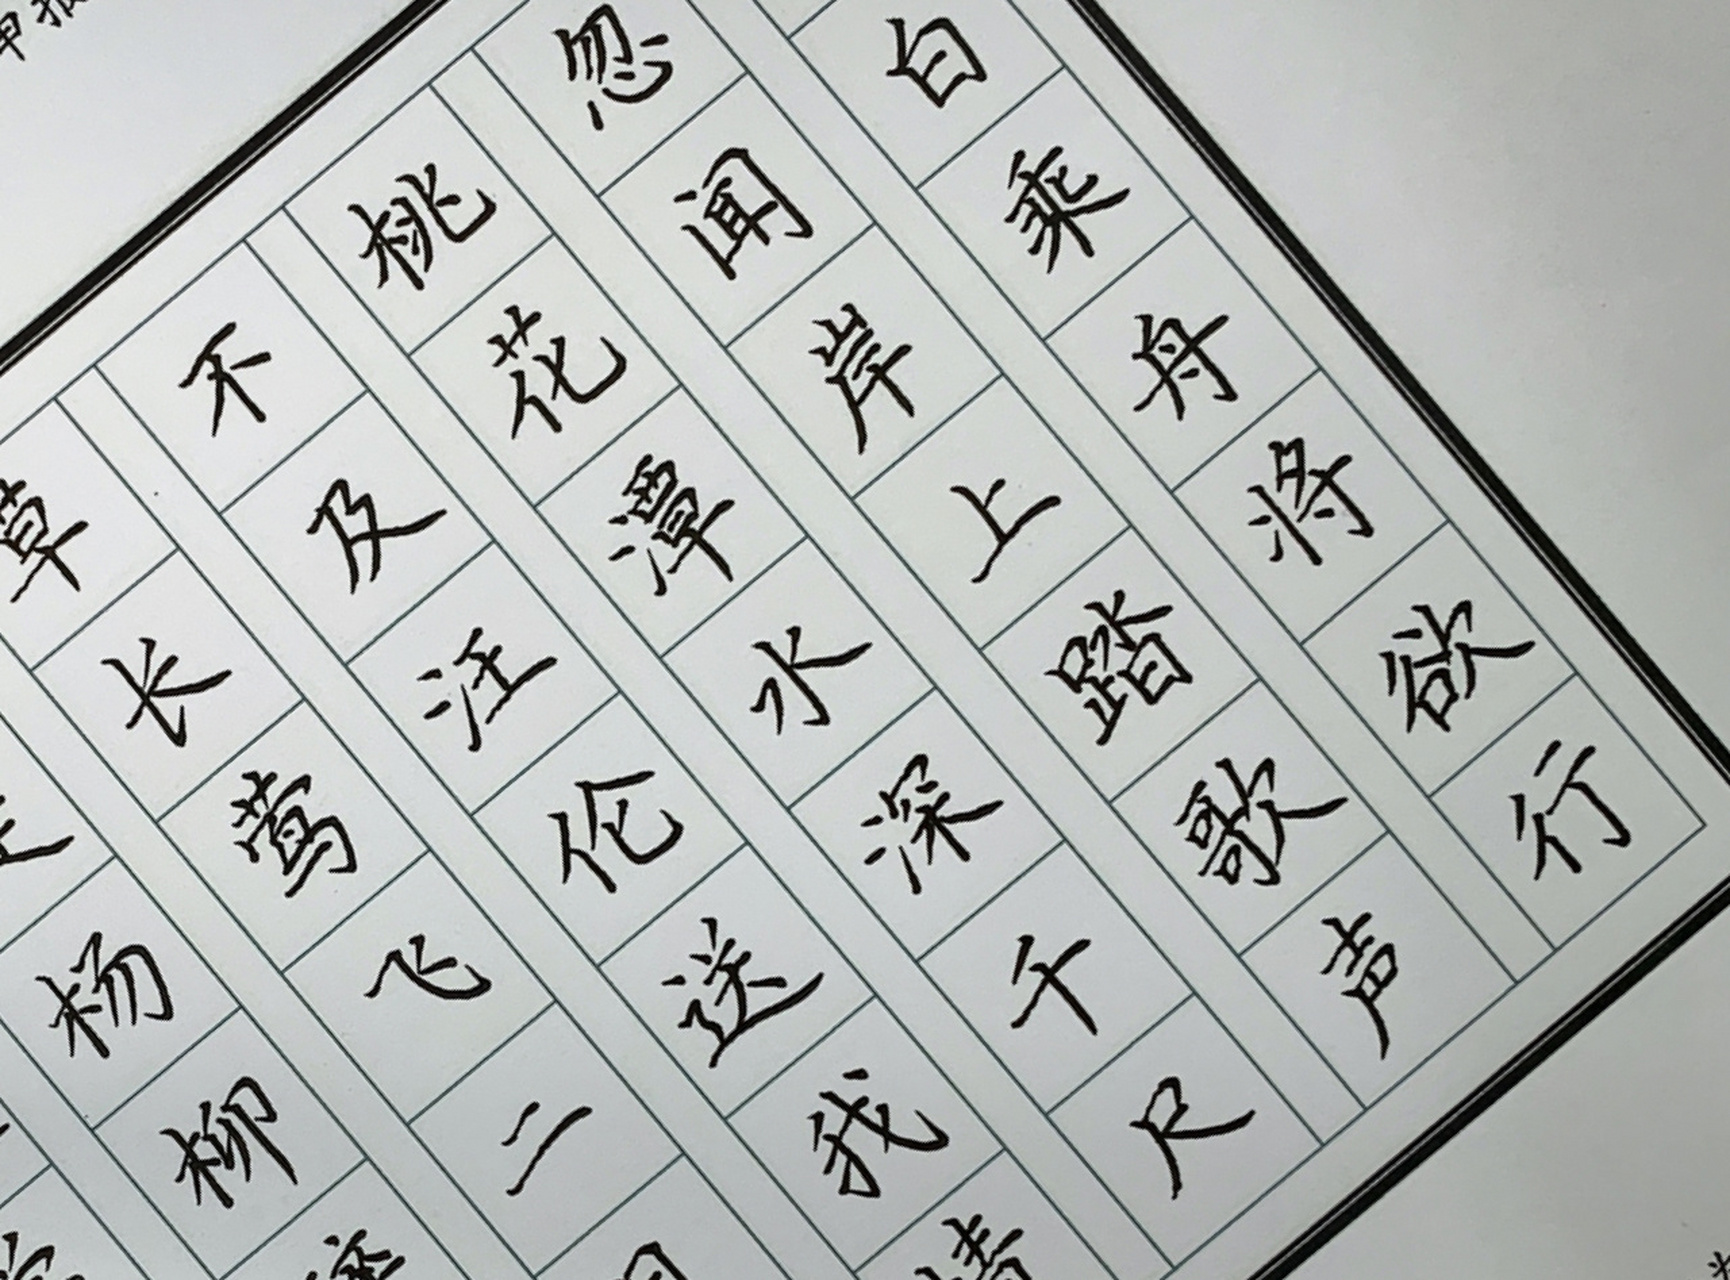 白乘舟将欲行
忽闻岸上踏歌声
桃花潭水深千尺
不及汪伦送我情
草长莺飞二月
杨柳